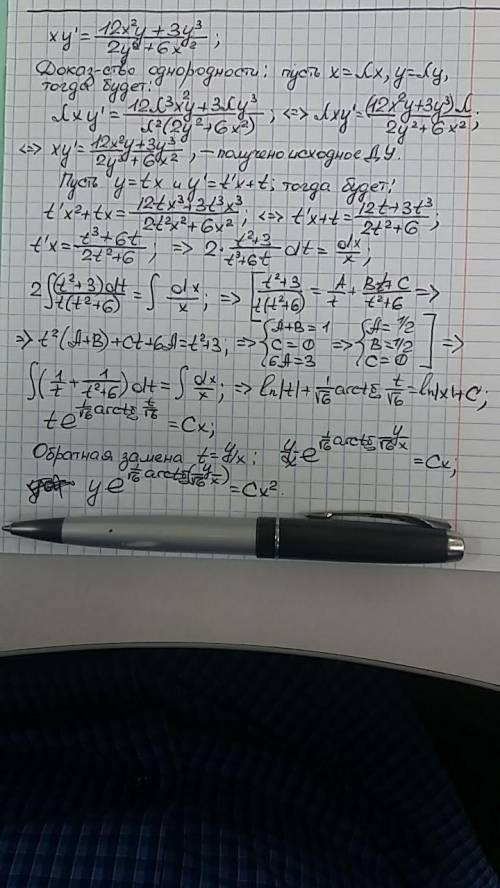 xy' = (12x²y + 3y³)/(2y² + 6x²);
Доказ-ство однородности: пусть x=λx, y=λy,
тогда будет:
λxy' = (12λ³x²y + 3λy³)/(λ²(2y² + 6x²)); <=> λxy' = ((12x²y+3y³)λ)/(2y²+6x²);
<=> xy' = (12x²y+3y³)/(2y²+6x²), – получено исходное ДУ.
Пусть y=tx и y'=t'x+t; тогда будет:
t'x²+tx = (12tx³+3t³x³)/(2t²x²+6x²); <=> t'x+t = (12t+3t³)/(2t²+6);
t'x = (t³+6t)/(2t²+6); => 2·(t²+3)/(t³+6t) dt = dx/x;
2∫((t²+3)dt)/(t(t²+6)) = ∫dx/x; => [(t²+3)/(t(t²+6)) = A/t + (Bt+C)/(t²+6) =>
=> t²(A+B)+Ct+6A=t²+3; => {A+B=1 C=0 6A=3 => {A=1/2 B=1/2 C=0] =>
∫(1/t + 1/(t²+6))dt = ∫dx/x; => ln|t| + 1/√6 arctg t/√6 = ln|x|+C;
te^(1/√6 arctg t/√6) = Cx;
Обратная замена t=y/x: y/x e^(1/√6 arctg y/(√6x)) = Cx;
ye^(1/√6 arctg(y/(√6x))) = Cx².